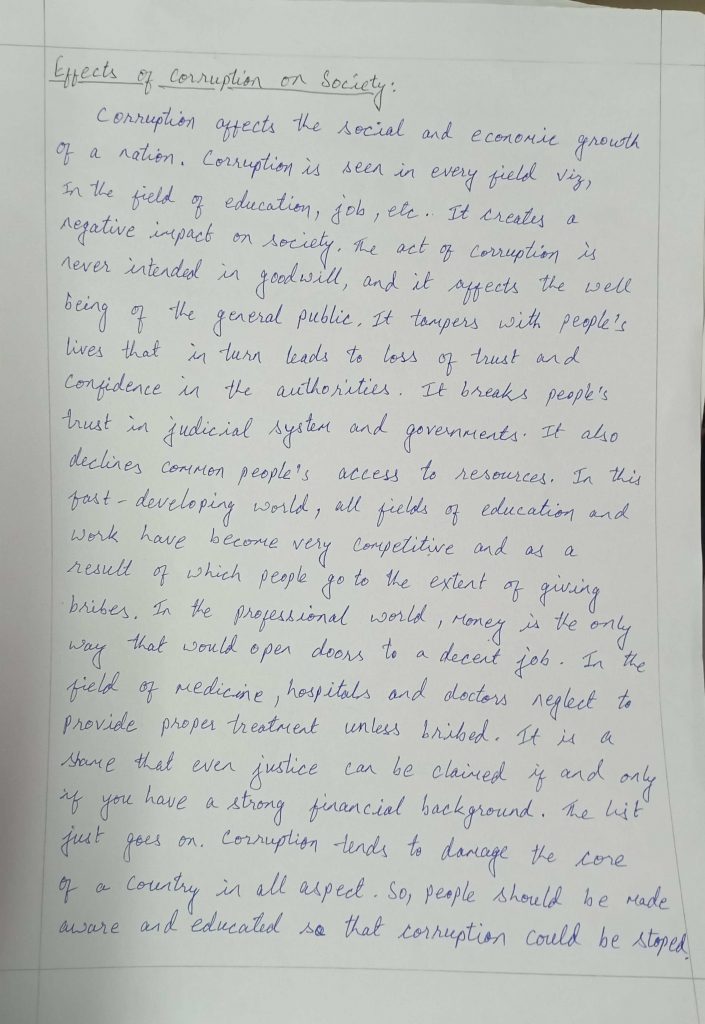 Effects of Corruption on Society:
Corruption affects the social and economic growth
of a nation. Corruption is seen in every field viz,
In the field of education, job, etc. It creates a
negative impact on society. The act of corruption is
never intended in goodwill, and it affects the well
being of the general public. It tampers with people's
lives that in turn leads to loss of trust and
confidence in the authorities. It breaks people's
trust in judicial system and governments. It also
declines common people's access to resources. In this
fast-developing world, all fields of education and
work have become very competitive and as a
result of which people go to the extent of giving
bribes. In the professional world, money is the only
way that would open doors to a decent job. In the
field of medicine, hospitals and doctors neglect to
provide proper treatment unless bribed. It is a
shame that even justice can be claimed if and only
if you have a strong financial background. The list
just goes on. Corruption tends to damage the core
of a country in all aspect. So, people should be made
aware and educated so that corruption could be stoped.